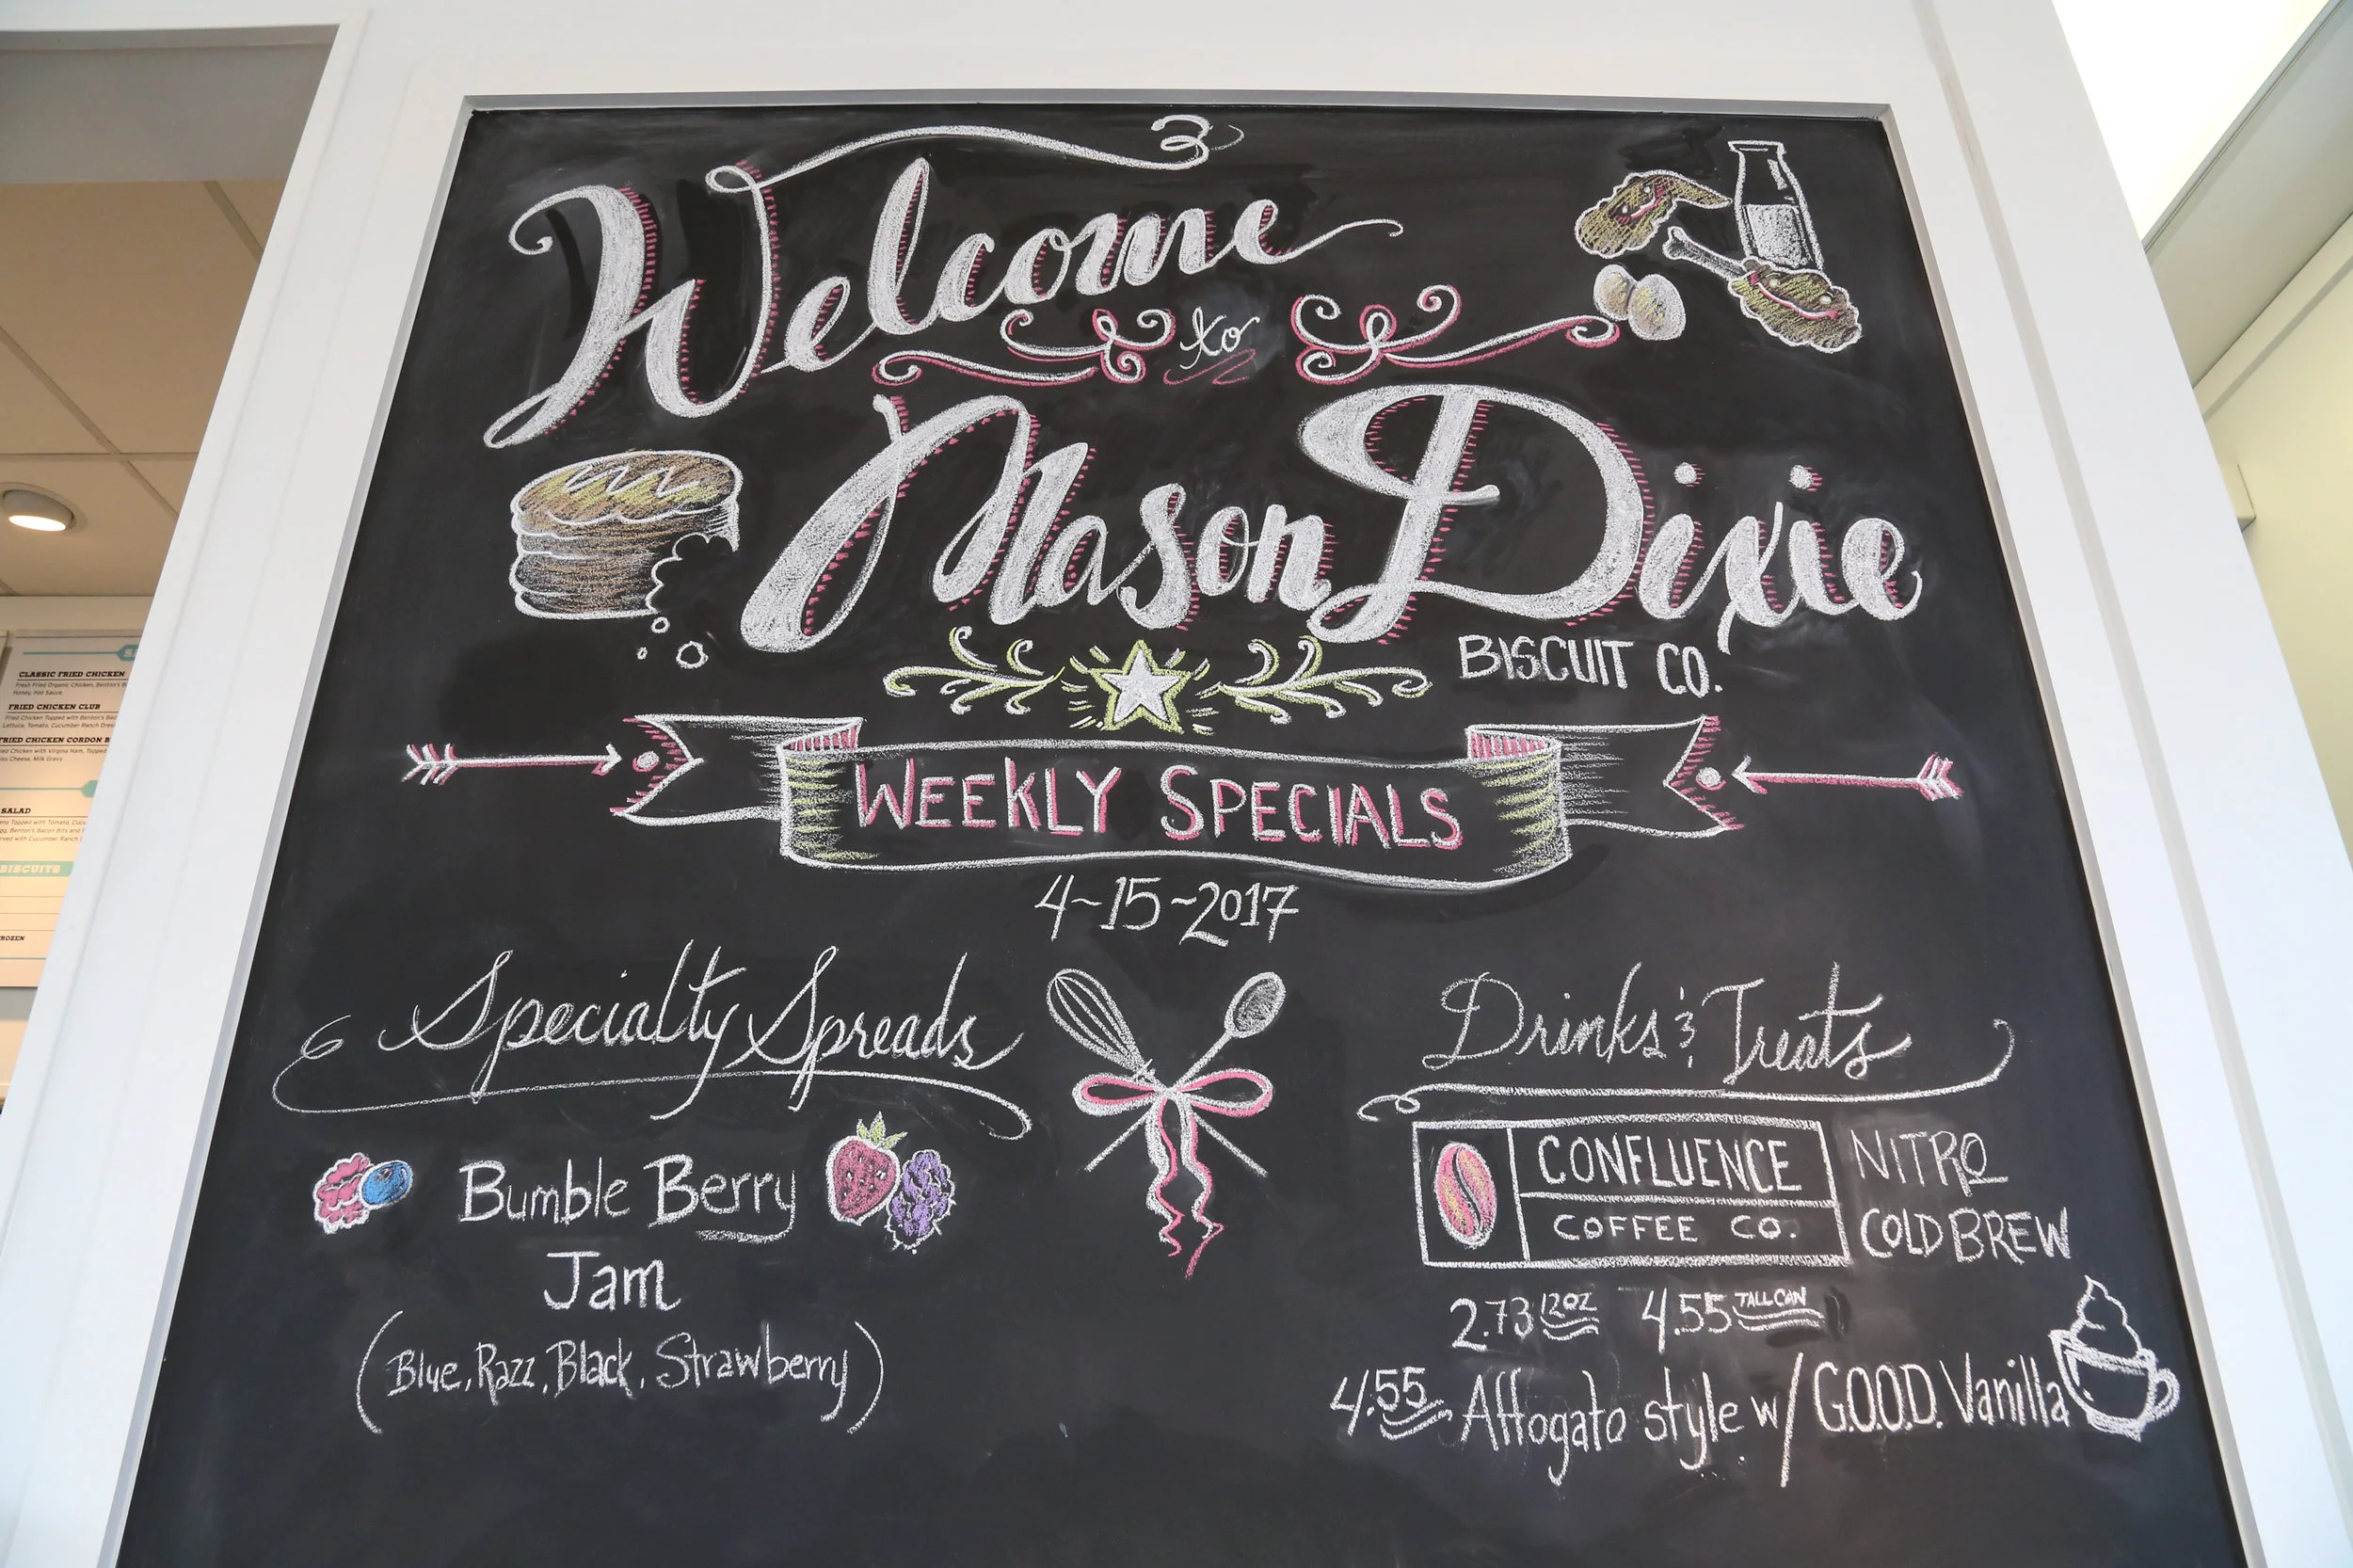 Welcome
to
Mason Dixie
BISCUIT CO.
WEEKLY SPECIALS
4-15-2017
Specialty Spreads
Bumble Berry
Jam
(Blue, Razz, Black, Strawberry)
Drinks & Treats
CONFLUENCE
COFFEE CO.
NITRO
COLD BREW
2.73 12OZ 4.55 TALL CAN
4.55 Affogato style w/ G.O.O.D. Vanilla
CLASSIC FRIED CHICKEN
Fresh Fried Organic Chicken, Benton's
Honey, Hot Sauce
FRIED CHICKEN CLUB
Fried Chicken Topped with Benton's
Lettuce, Tomato, Cucumber Ranch
FRIED CHICKEN CORDON
Chicken with Virginia Ham, Topped
Cheese, Milk Gravy
SALAD
Topped with Tomato,
Benton's Bacon Bits and
with Cucumber Ranch
BISCUITS